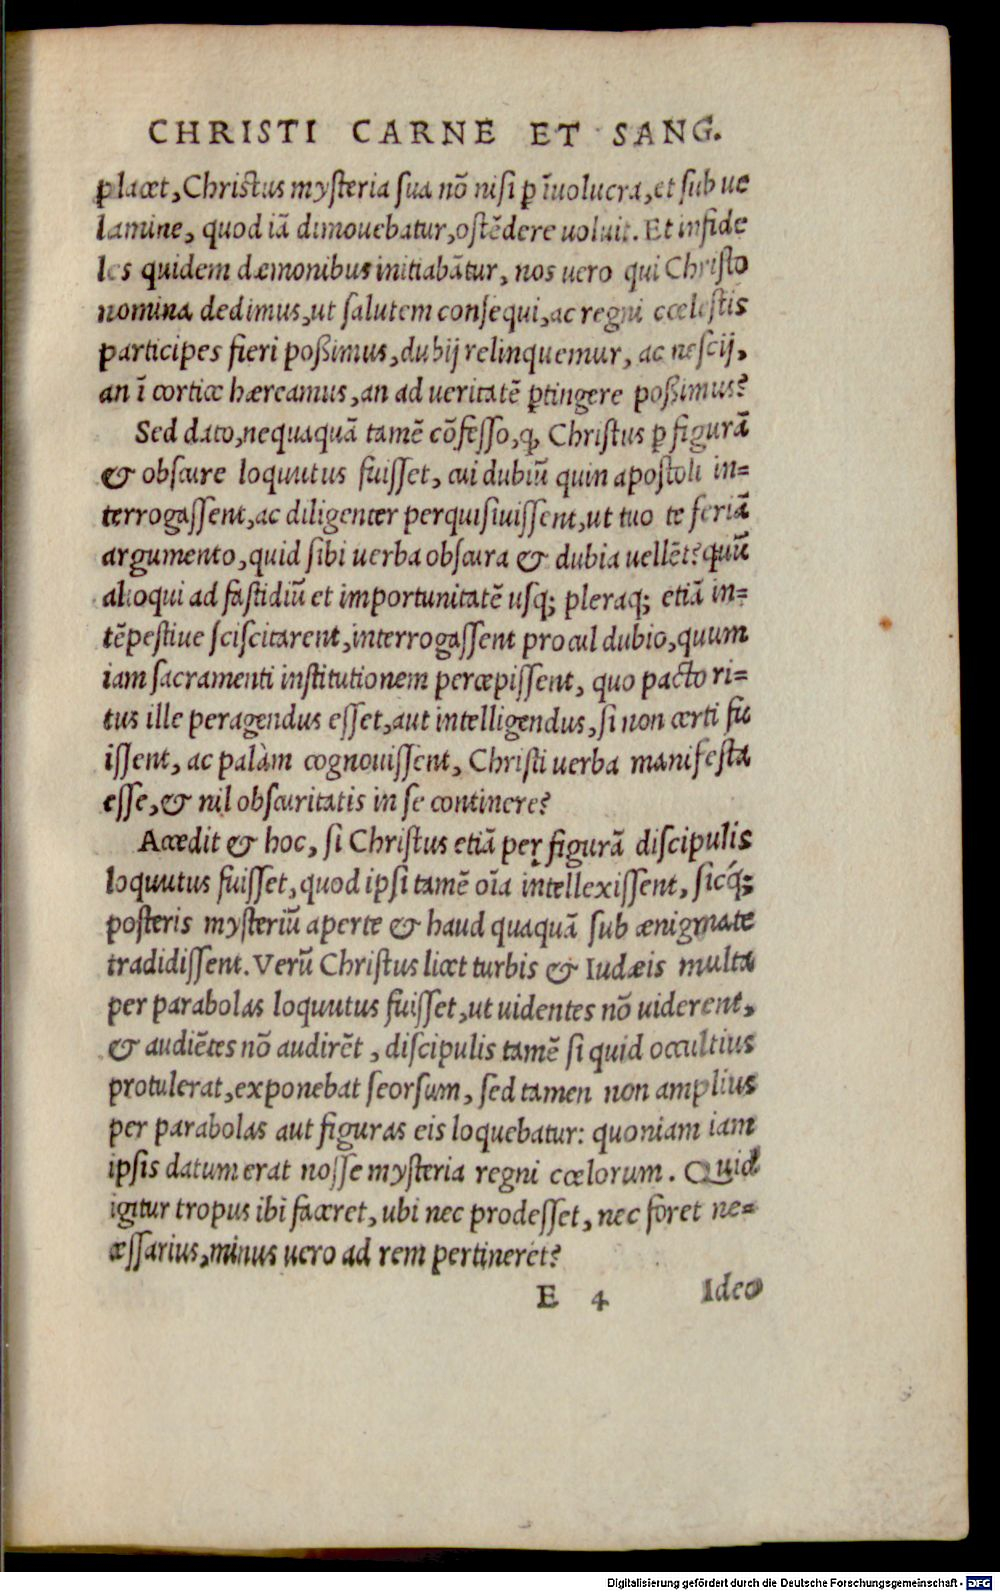 CHRISTI CARNE ET SANG.
placet, Christus mysteria sua nõ nisi ꝑ ĩuolucra, et sub ue
lamine, quod iã dimouebatur, ostẽdere uoluit. Et infide
les quidem dæmonibus initiabãtur, nos uero qui Christo
nomina dedimus, ut salutem consequi, ac regni cœlestis
participes fieri poßimus, dubij relinquemur, ac nescij,
an ĩ cortice hæreamus, an ad ueritatẽ ꝑtingere poßimus?
Sed dato, nequaquã tamẽ cõfesso, ꝙ Christus ꝑ figurã
& obscure loquutus fuisset, cui dubiũ quin apostoli in=
terrogassent, ac diligenter perquisiuissent, ut tuo te feriã
argumento, quid sibi uerba obscura & dubia uellẽt? quũ
alioqui ad fastidiũ et importunitatẽ usq; pleraq; etiã in=
tẽpestiue sciscitarent, interrogassent procul dubio, quum
iam sacramenti institutionem percepissent, quo pacto ri=
tus ille peragendus esset, aut intelligendus, si non certi fu
issent, ac palàm cognouissent, Christi uerba manifesta
esse, & nil obscuritatis in se continere?
Accedit & hoc, si Christus etiã per figurã discipulis
loquutus fuisset, quod ipsi tamẽ oĩa intellexissent, sicq́;
posteris mysteriũ aperte & haud quaquã sub ænigmate
tradidissent. Verũ Christus licet turbis & Iudæis multa
per parabolas loquutus fuisset, ut uidentes nõ uiderent,
& audiẽtes nõ audirẽt, discipulis tamẽ si quid occultius
protulerat, exponebat seorsum, sed tamen non amplius
per parabolas aut figuras eis loquebatur: quoniam iam
ipsis datum erat nosse mysteria regni cœlorum. Quid
igitur tropus ibi faceret, ubi nec prodesset, nec foret ne=
cessarius, minus uero ad rem pertineret?
E 4 Ideo
Digitalisierung gefördert durch die Deutsche Forschungsgemeinschaft - DFG